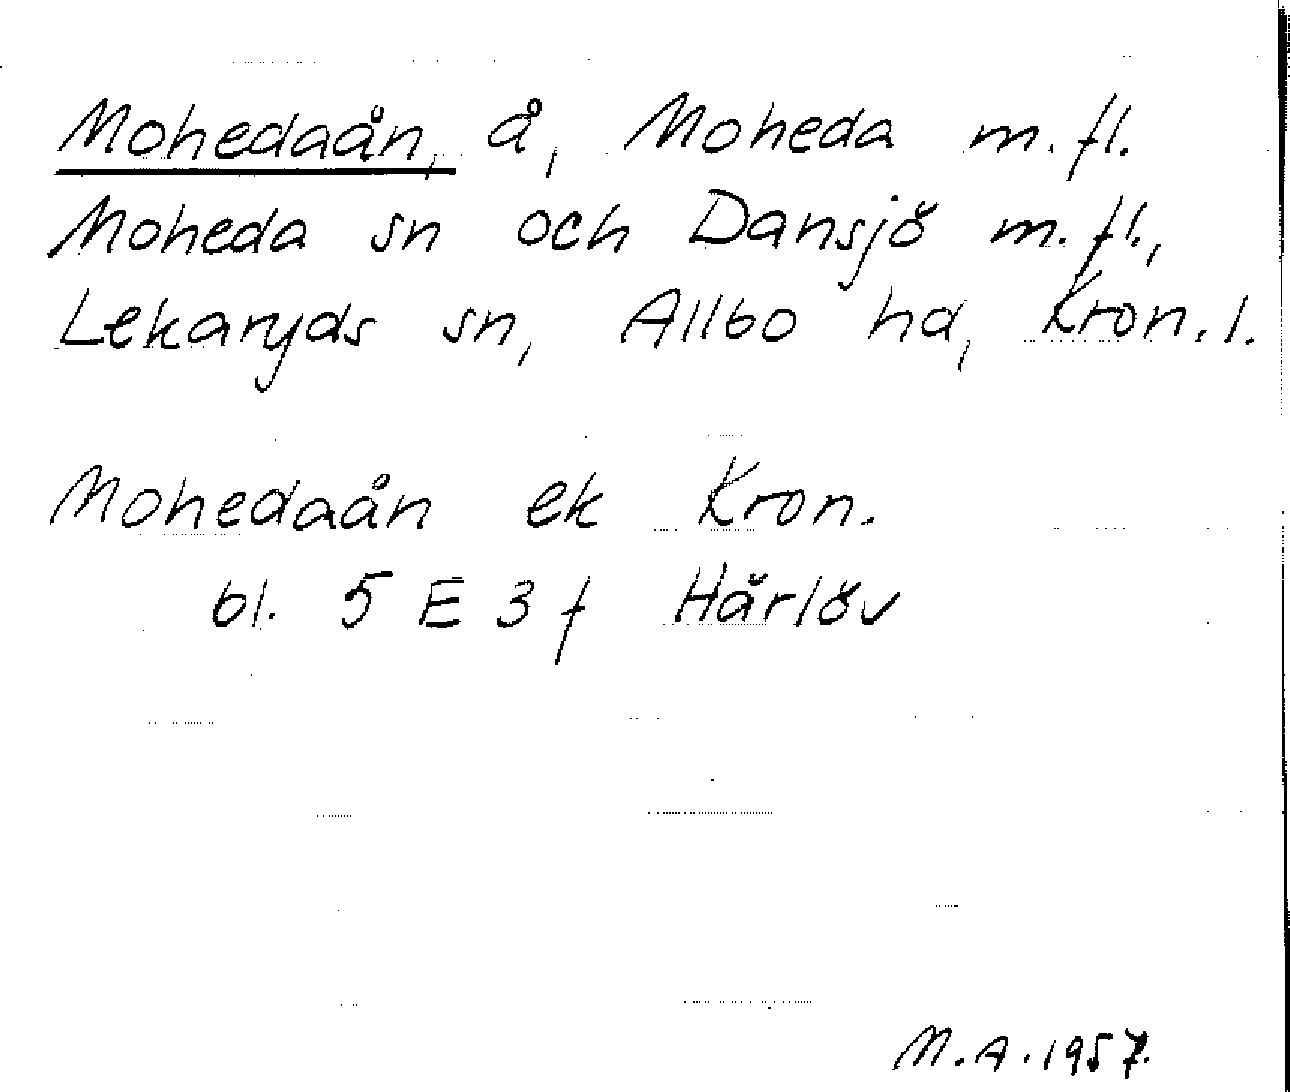 Mohedaån, å, Moheda m.fl.
Moheda sn och Dansjö m.fl.,
Lekaryds sn, Allbo hd, Kron.l.
Mohedaån ek Kron.
bl. 5 E 3 f Härlöv
M.A.1957.